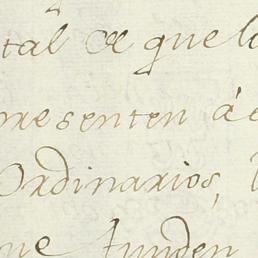 tal de que lo
presenten á e
Ordinarios,
que funden